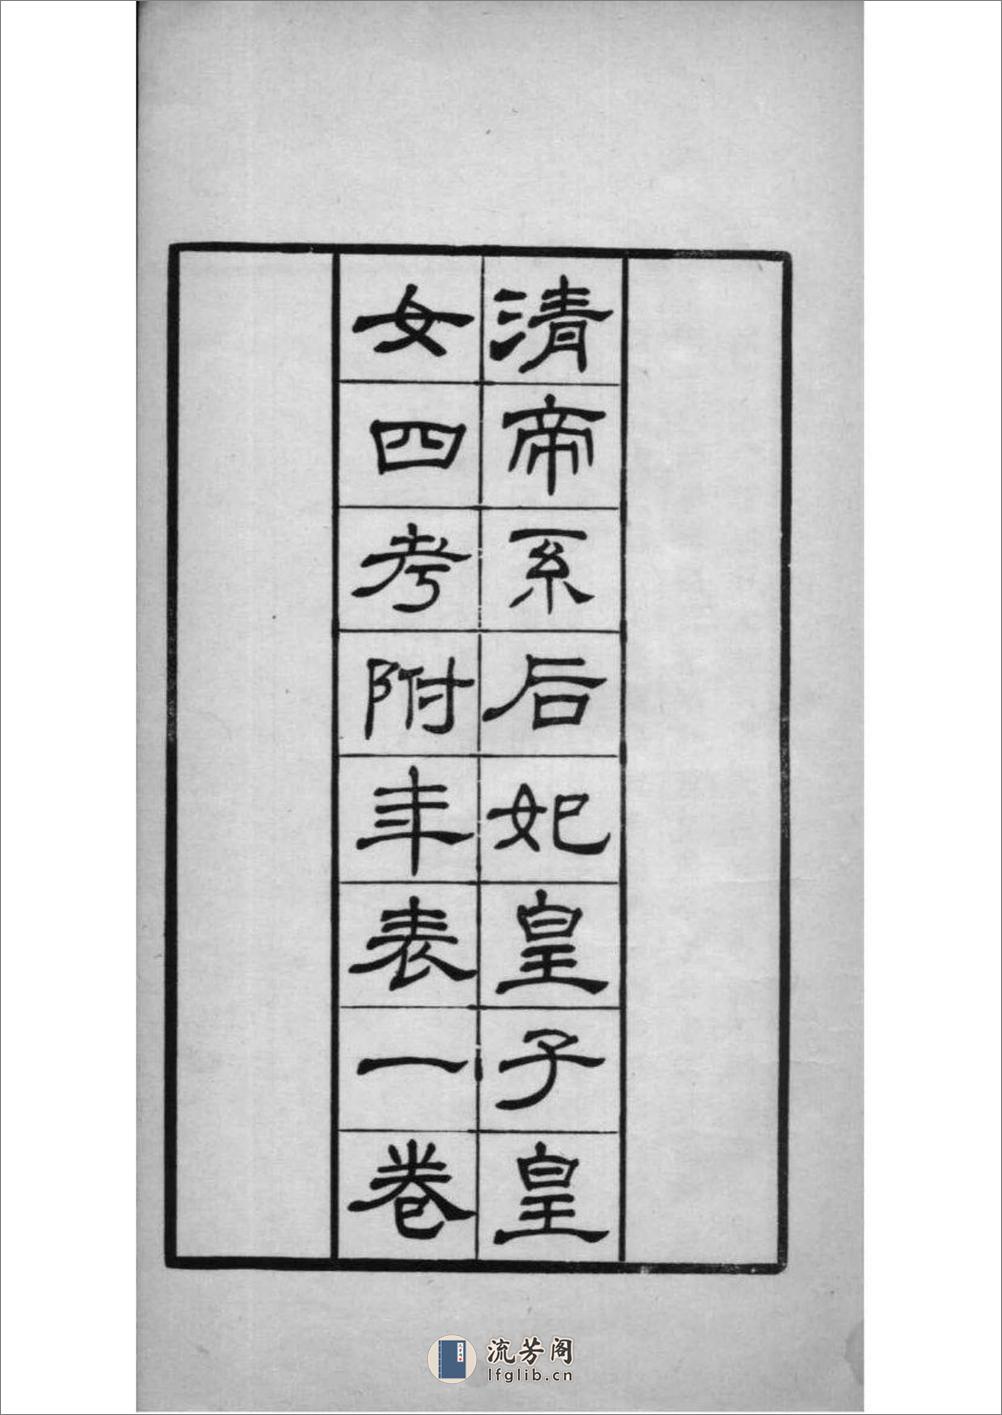 清帝系后妃皇子皇
女四考附年表一卷
流芳阁
lfglib.cn